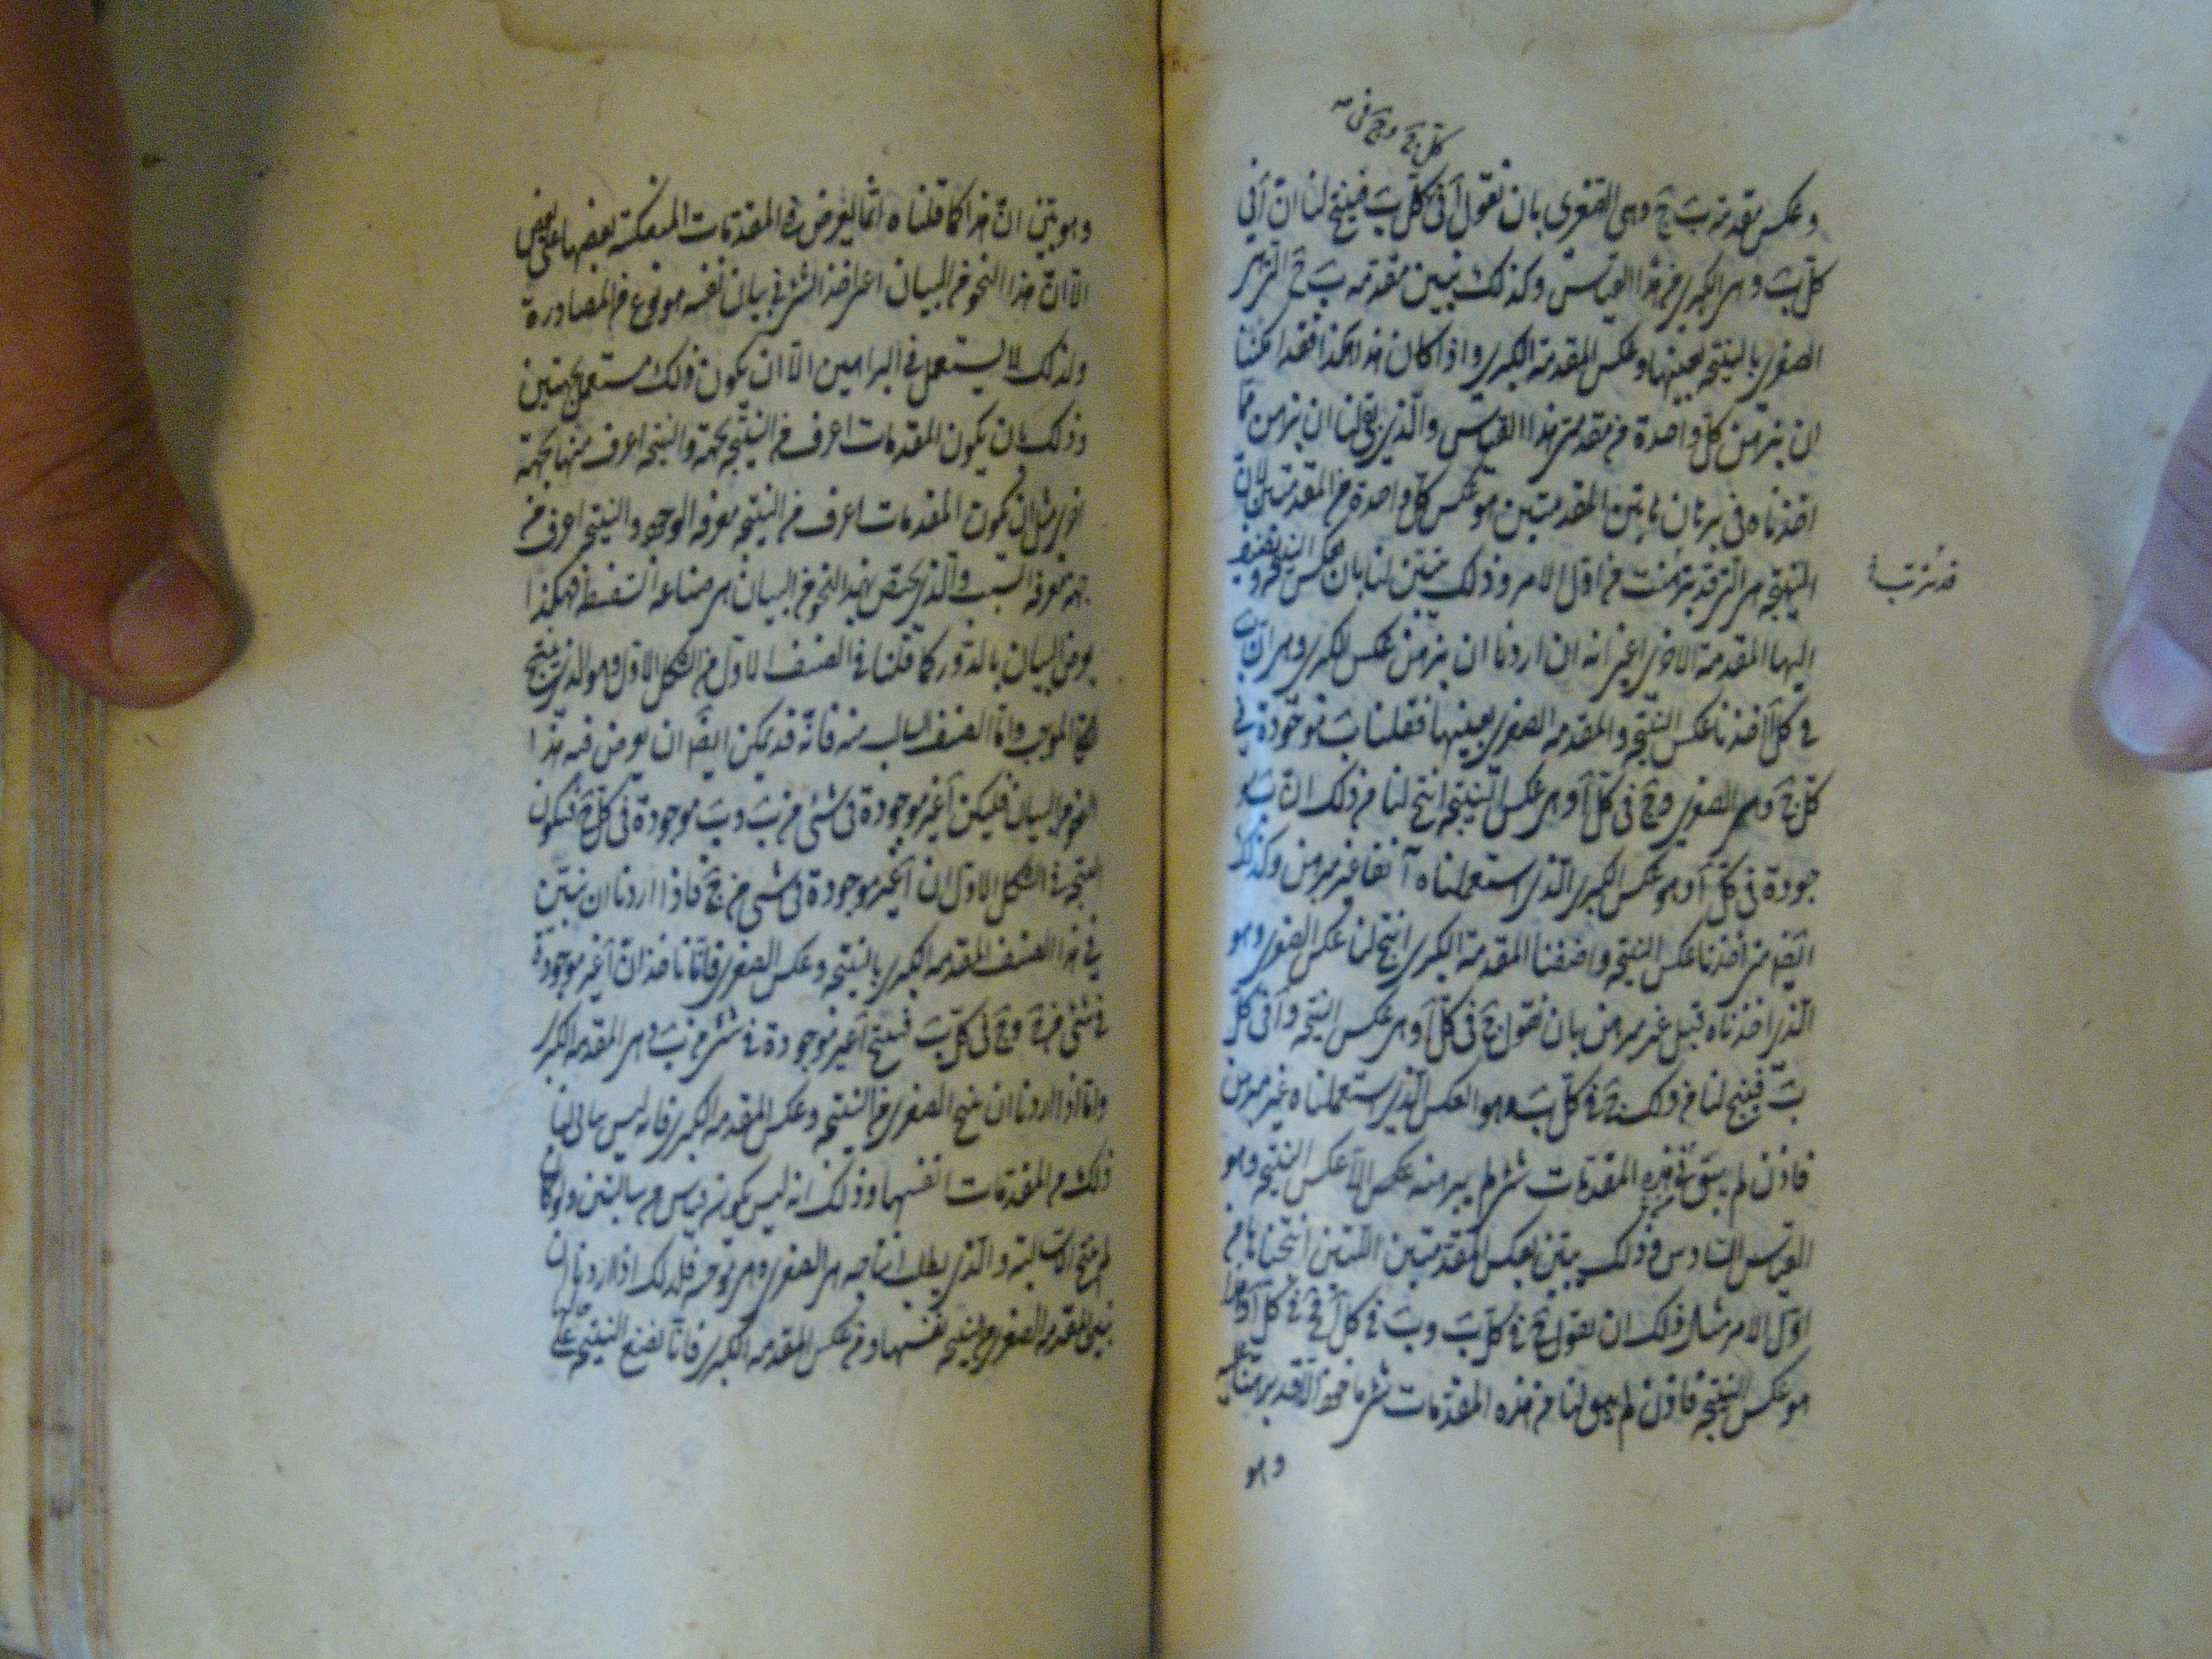 كل جَ وجَ فى
وعكس مقدمة بَ جَ وهى الصغرى بان نقول آ فى كل بَ فينتج لنا ان آ فى
كل بَ وهى الكبرى من هذا القياس وكذلك نبين مقدمة بَ جَ التى هى
الصغرى بالنتيجة بعينها وعكس المقدمة الكبرى واذا كان هذا هكذا فقد امكننا
ان نبرهن كل واحدة من مقدمتى هذا القياس والذى بقى لنا ان نبرهن مما
اخذناه فى برهان هاتين المقدمتين هو عكس كل واحدة من المقدمتين لان
النتيجة هى التى قد تبرهنت من اول الامر وذلك يتبين لنا بان نعكس النتيجة ونضيف
قد تبرهنت
اليها المقدمة الاخرى اعنى انه ان اردنا ان نبرهن عكس الكبرى وهى ان بَ
فى كل آ اخذنا عكس النتيجة والمقدمة الصغرى بعينها فقلنا بَ موجودة فى
كل جَ وهى الصغرى وجَ فى كل آ وهى عكس النتيجة انتج لنا من ذلك ان بَ مو
جودة فى كل آ وهو عكس الكبرى الذى استعملناه آنفا غير مبرهن وكذلك
ايضا متى اخذنا عكس النتيجة واضفنا المقدمة الكبرى انتج لنا عكس الصغرى وهو
الذى اخذناه قبل غير مبرهن بان نقول جَ فى كل آ وهى عكس النتيجة وآ فى كل
بَ فينتج لنا من ذلك جَ فى كل بَ وهو العكس الذى استعملناه غير مبرهن
فاذن لم يبق فى هذه المقدمات شئ لم يبرهن عكس الا عكس النتيجة وهو
القياس السادس وذلك يبين بعكس المقدمتين اللتين انتجناها من
اول الامر مثال ذلك ان نقول جَ فى كل بَ وبَ فى كل آ فجَ فى كل آ وهذا
هو عكس النتيجة فاذن لم يبق لنا من هذه المقدمات شئ ما الا قد برهناه
وهو
وهو بين ان هذا كما قلناه انما يعرض فى المقدمات المنعكسة بعضها على بعض
الا ان هذا النحو من البيان اعنى اخذ الشئ فى بيان نفسه هو نوع من المصادرة
ولذلك لا يستعمل فى البراهين الا ان يكون ذلك مستعمل بجهتين
وذلك بان يكون المقدمات اعرف من النتيجة بجهة والنتيجة اعرف منها بجهة
اخرى مثل ان تكون المقدمات اعرف من النتيجة معرفة الوجود والنتيجة اعرف من
جهة معرفة السبب والذى يختص بهذا النحو من البيان هى صناعة السفسطة فهكذا
يعرض البيان بالدور كما قلنا فى الصنف الاول من الشكل الاول وهو الذى ينتج
الموجب واما الصنف السالب منه فانه قد يمكن ايضا ان يعرض فيه هذا
النحو من البيان فليكن آ غير موجودة فى شئ من بَ وبَ موجودة فى كل جَ فتكون
النتيجة فى الشكل الاول ان آ غير موجودة فى شئ من جَ فاذا اردنا ان نبين
فى هذا الصنف المقدمة الكبرى بالنتيجة وعكس الصغرى فانا ناخذ ان آ غير موجودة
فى شئ من جَ وجَ فى كل بَ فينتج آ غير موجودة فى شئ من بَ وهى المقدمة الكبرى
واما اذا اردنا ان ننتج الصغرى من النتيجة وعكس المقدمة الكبرى فانه ليس يتاتى لنا
ذلك من المقدمات انفسها وذلك انه ليس يكون قياس من سالبتين ولو كان
لم ينتج الا سالبة والذى يطلب انتاجه هى الصغرى وهى موجبة فلذلك اذا اردنا ان
نبين المقدمة الصغرى من النتيجة نفسها ومن عكس المقدمة الكبرى فانا نضع النتيجة على